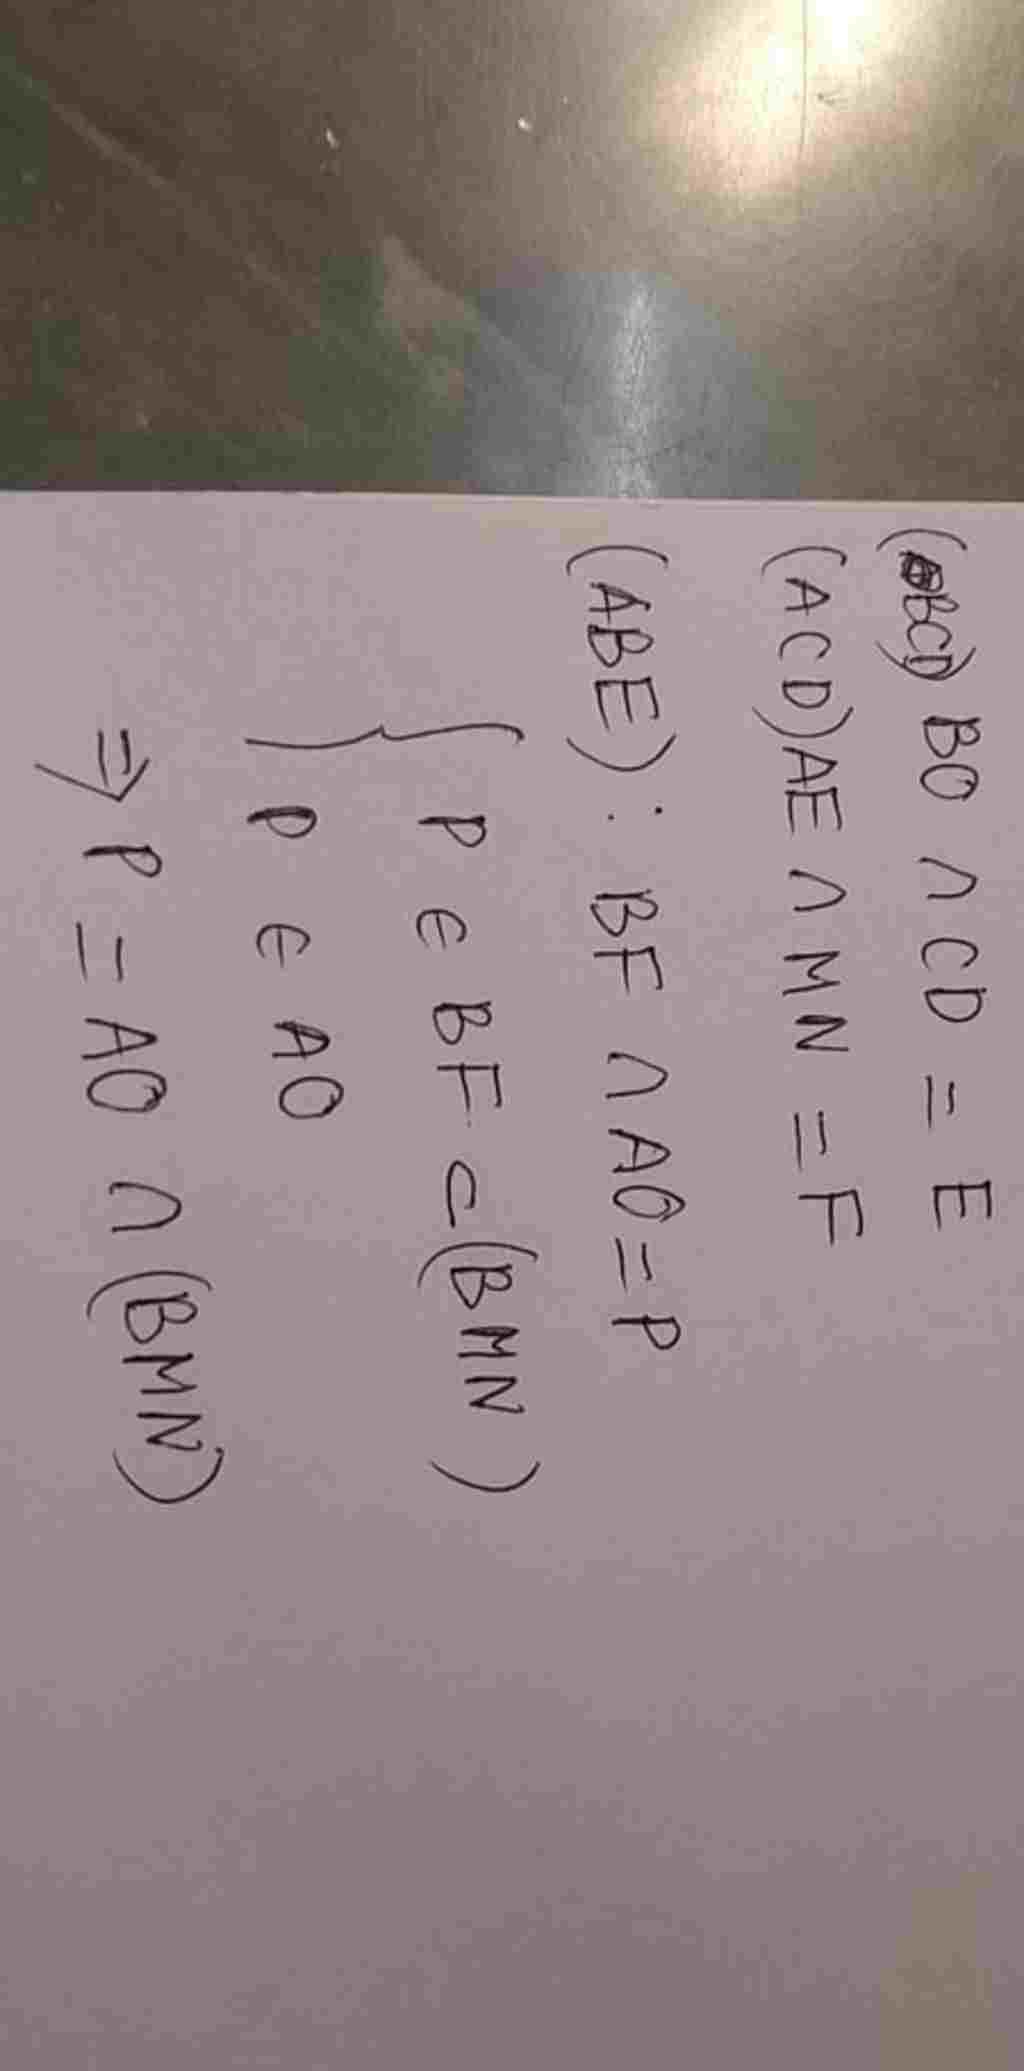 (BCD) BO ∩ CD = E
(ACD) AE ∩ MN = F
(ABE) : BF ∩ AO = P
{ P ∈ BF ⊂ (BMN)
P ∈ AO
⇒ P = AO ∩ (BMN)